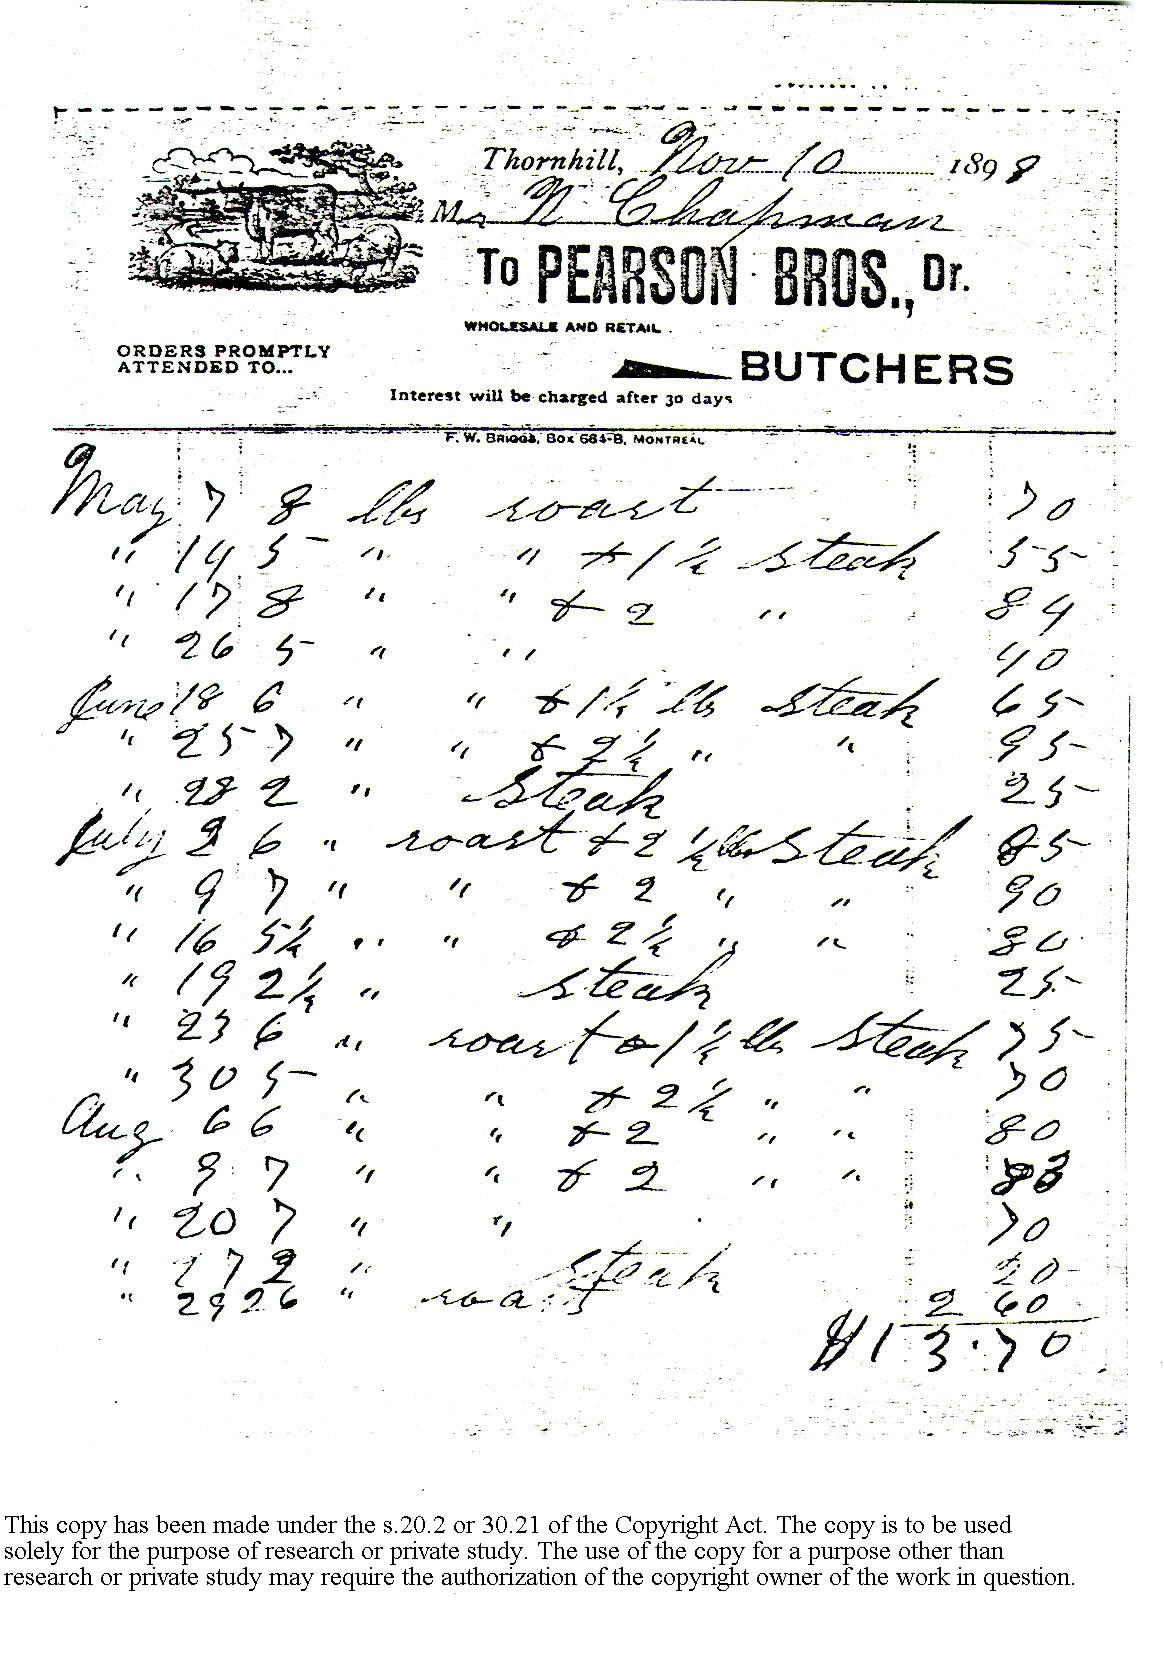 Thornhill, Nov 10 1898
Mr N Chapman
To PEARSON BROS., Dr.
WHOLESALE AND RETAIL
ORDERS PROMPTLY
ATTENDED TO...
BUTCHERS
Interest will be charged after 30 days
F. W. BRIGGS, BOX 684-B, MONTREAL
May 7 8 lbs roast 70
" 14 5 " " + 1 ½ steak 55
" 17 8 " " + 2 " 84
" 26 5 " " 40
June 18 6 " " + 1 ½ lbs steak 65
" 25 7 " " + 2 ½ " " 95
" 28 2 " steak 25
July 2 6 " roast + 2 ½ lbs steak 85
" 9 7 " " + 2 " " 90
" 16 5 ½ " " + 2 ½ " " 80
" 19 2 ½ " steak 25
" 23 6 " roast + 1 ½ lbs steak 75
" 30 5 " " + 2 ½ " " 70
Aug 6 6 " " + 2 " " 80
" 9 7 " " + 2 " " 83
" 20 7 " " 70
" 27 2 " steak 20
" 29 26 " roast 2 60
$13.70
This copy has been made under the s.20.2 or 30.21 of the Copyright Act. The copy is to be used
solely for the purpose of research or private study. The use of the copy for a purpose other than
research or private study may require the authorization of the copyright owner of the work in question.